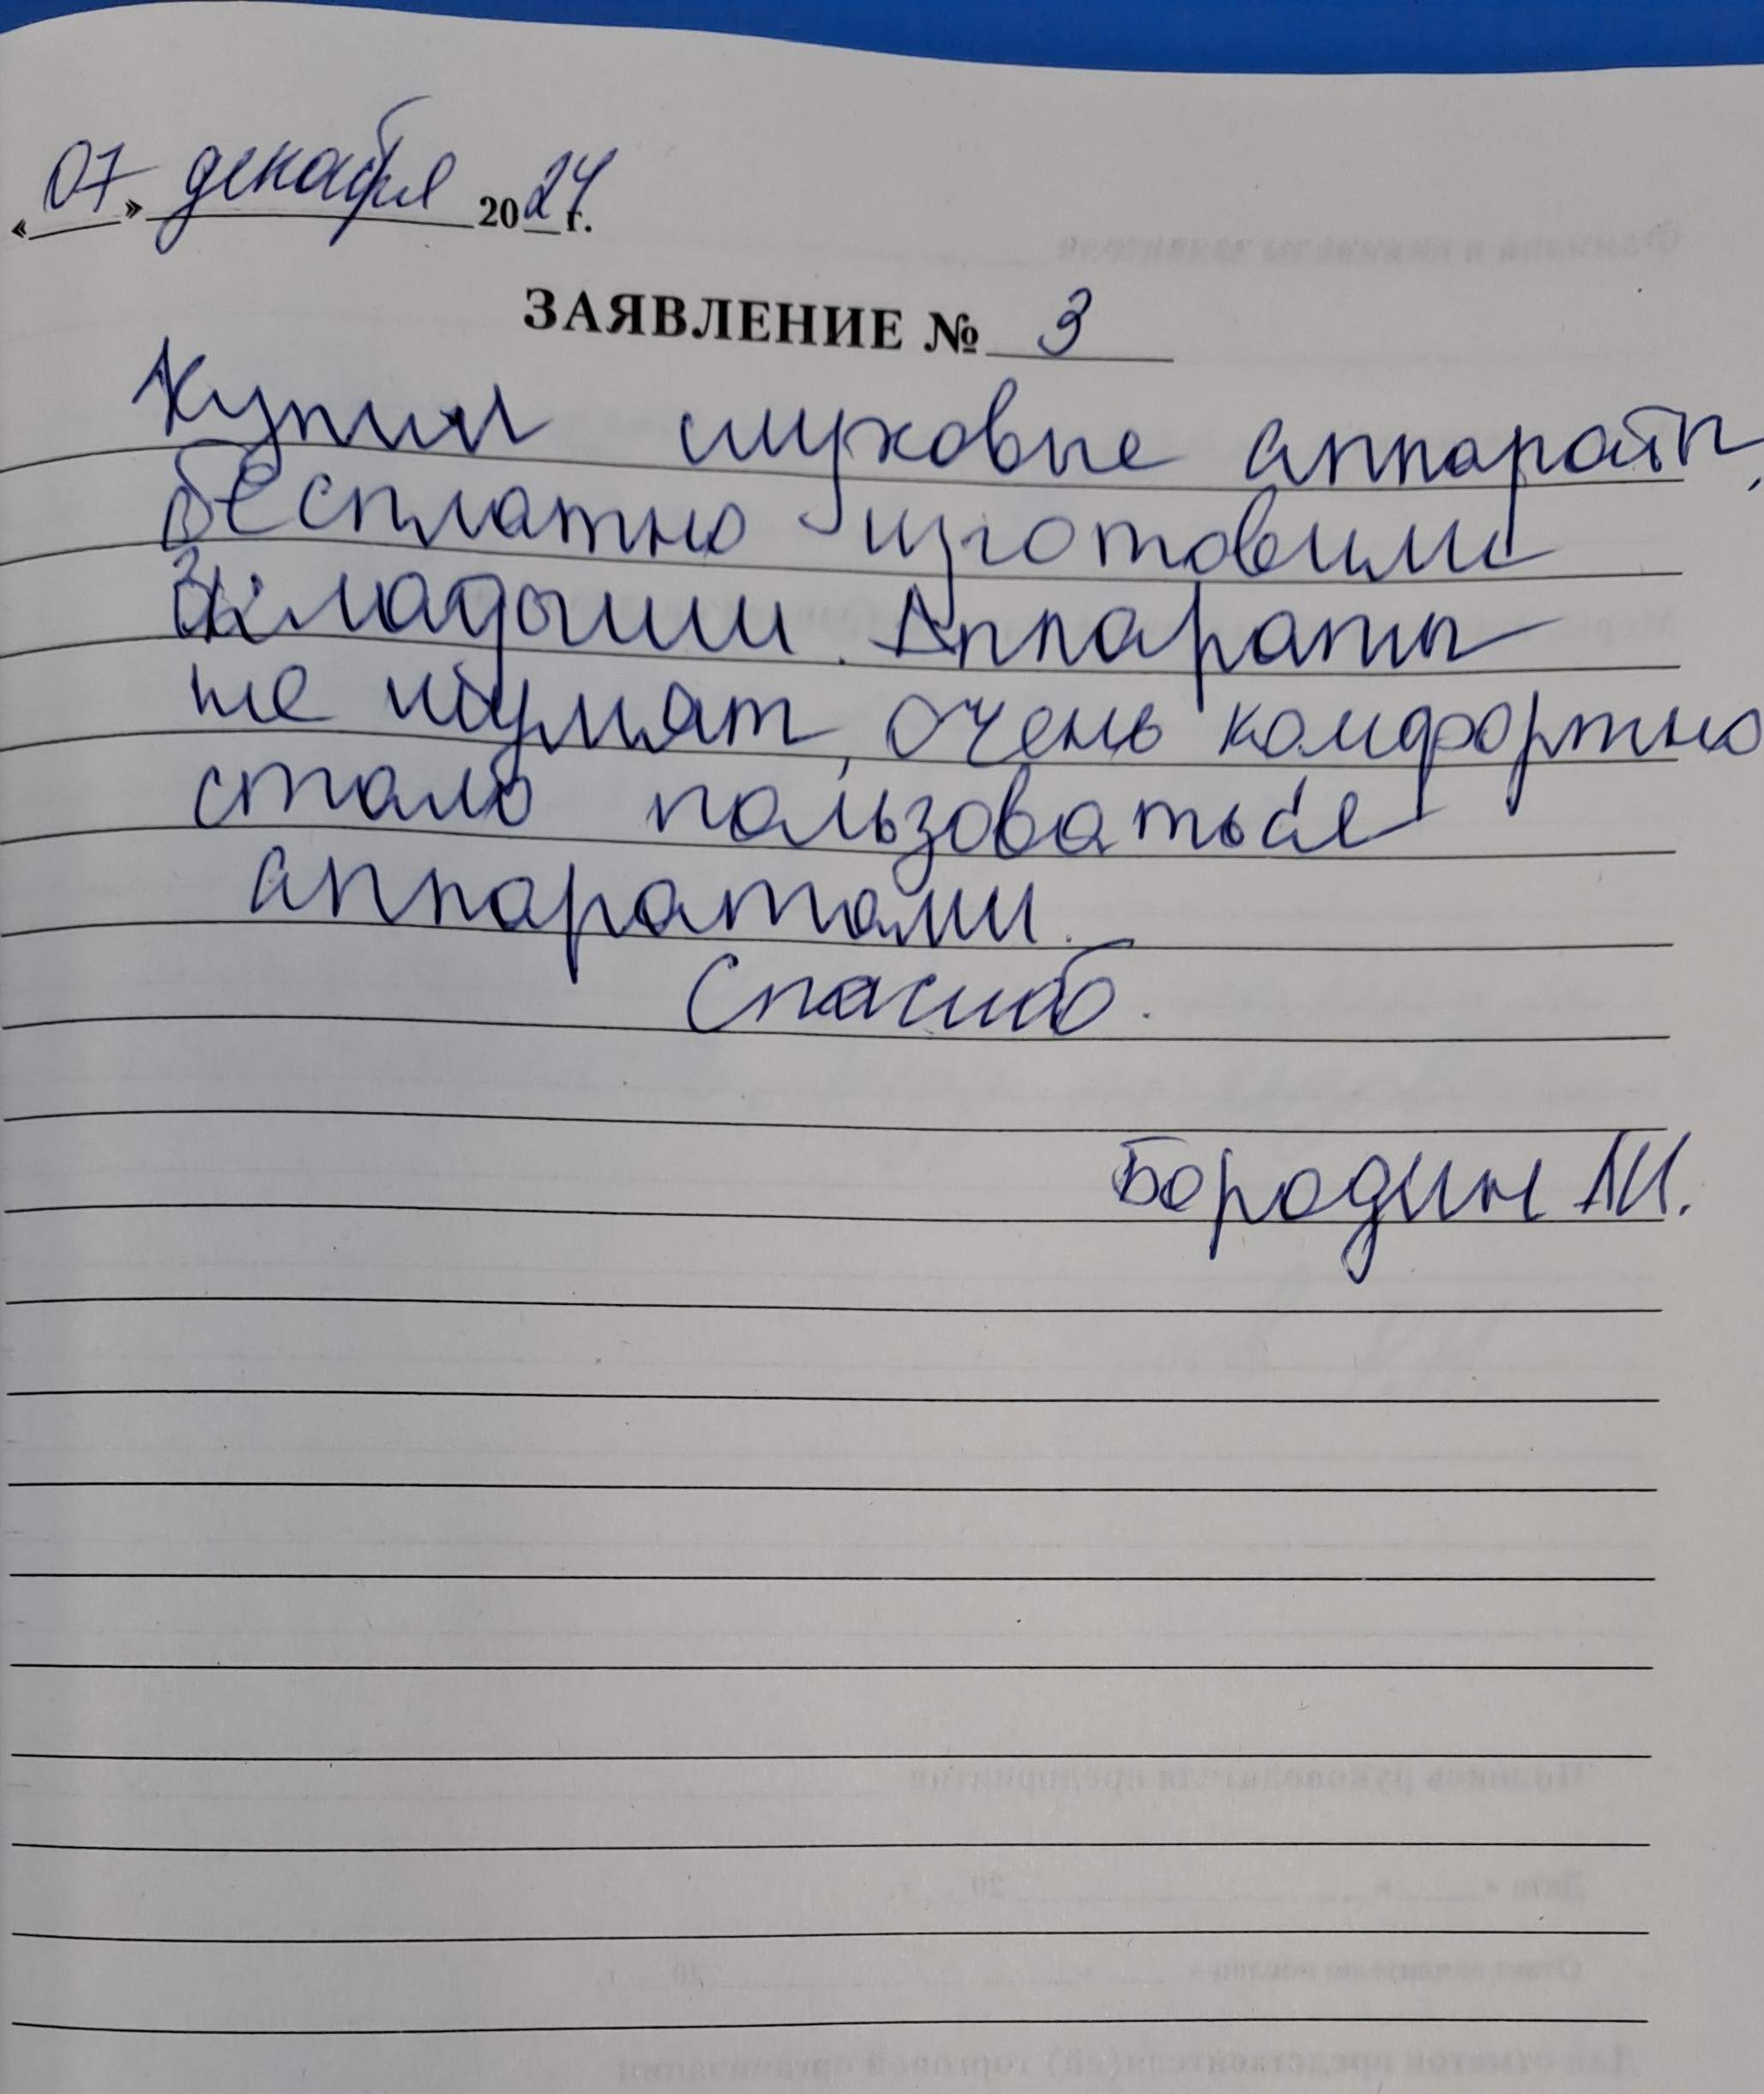 «07» декабря 2024 г.
ЗАЯВЛЕНИЕ № 3
Купил слуховые аппараты,
бесплатно изготовили
вкладыши. Аппараты
не шумят, очень комфортно
стало пользоваться
аппаратами.
Спасибо.
Бородин А.И.